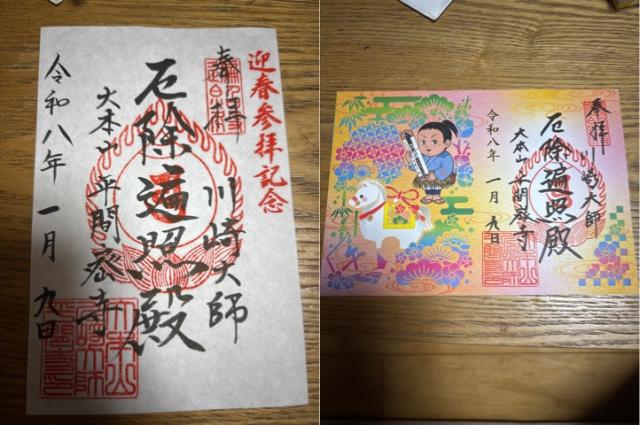 迎春参拝記念
奉拝
川崎大師
厄除遍照殿
大本山平間寺
令和八年一月九日
奉拝
川崎大師
厄除遍照殿
大本山平間寺
令和八年一月九日